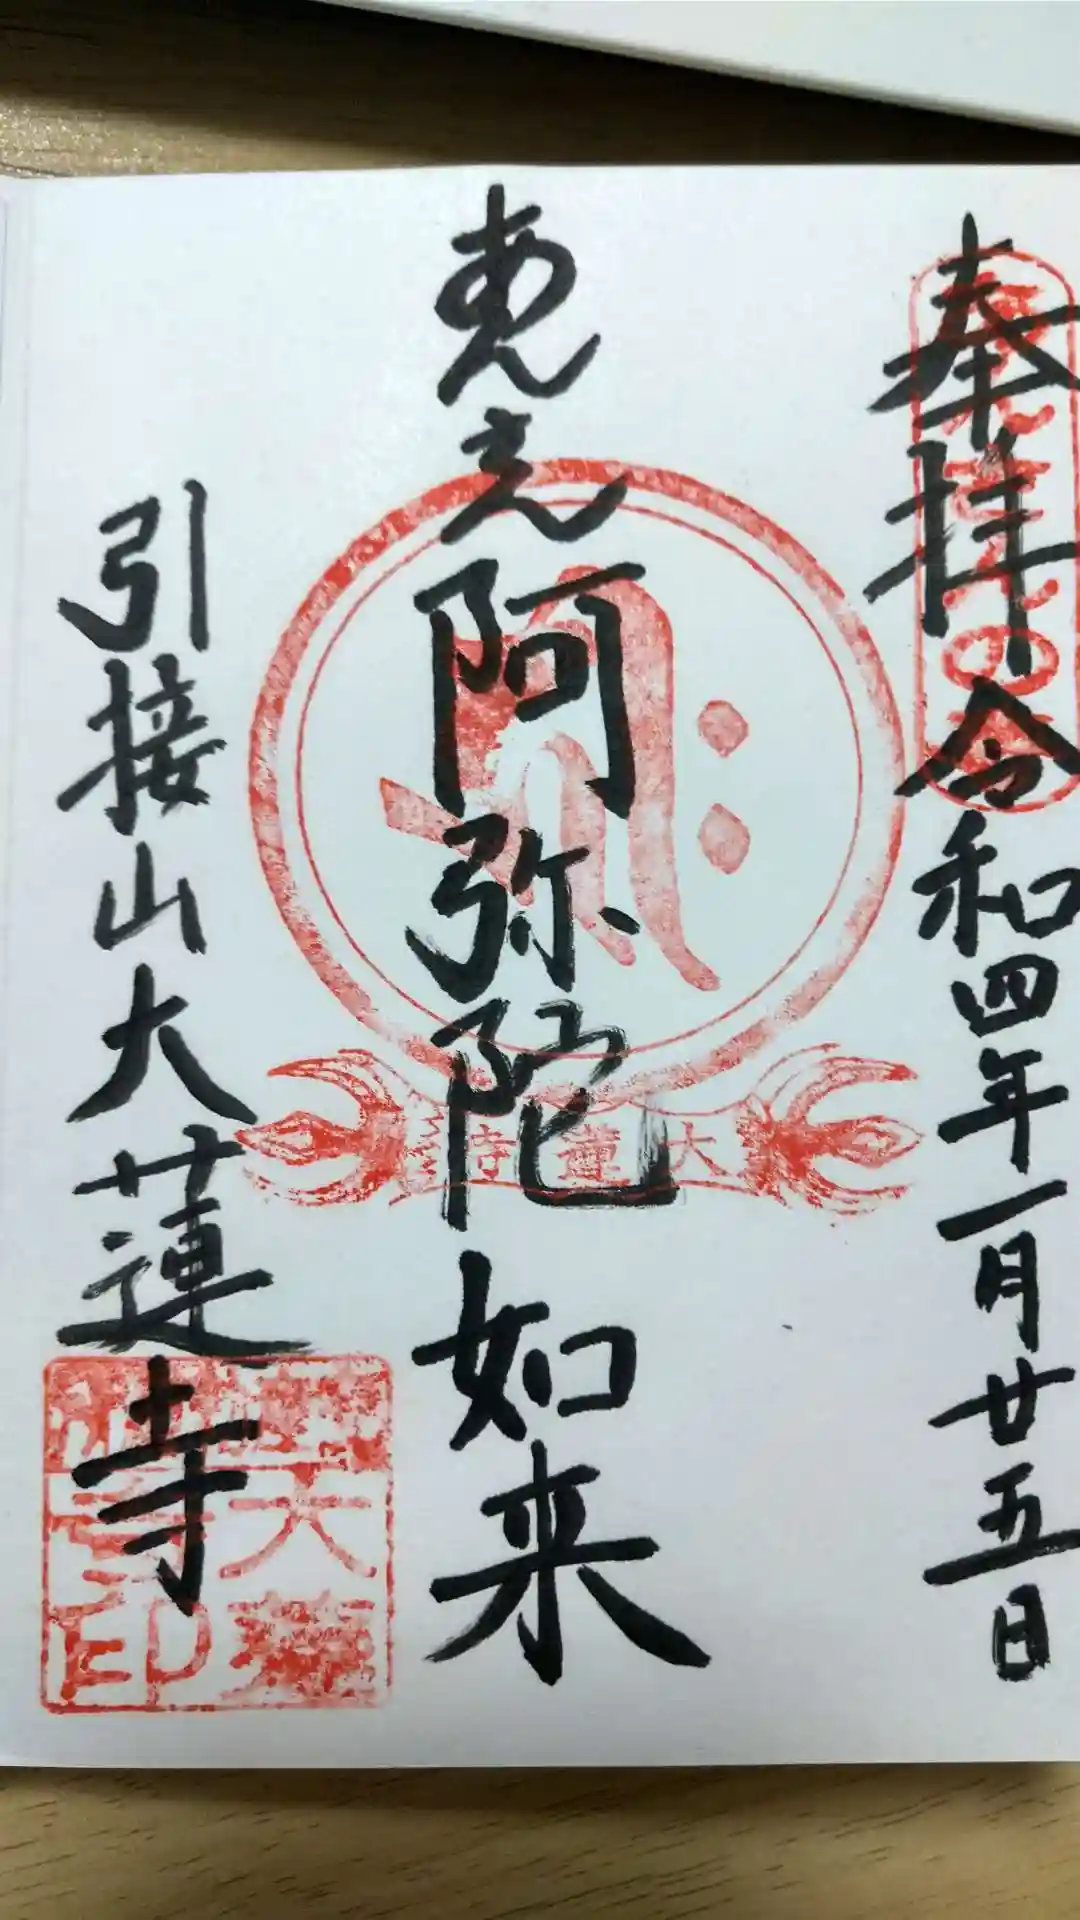 奉拝令和四年一月廿五日
あんさん阿弥陀如来
大蓮寺
引接山大蓮寺